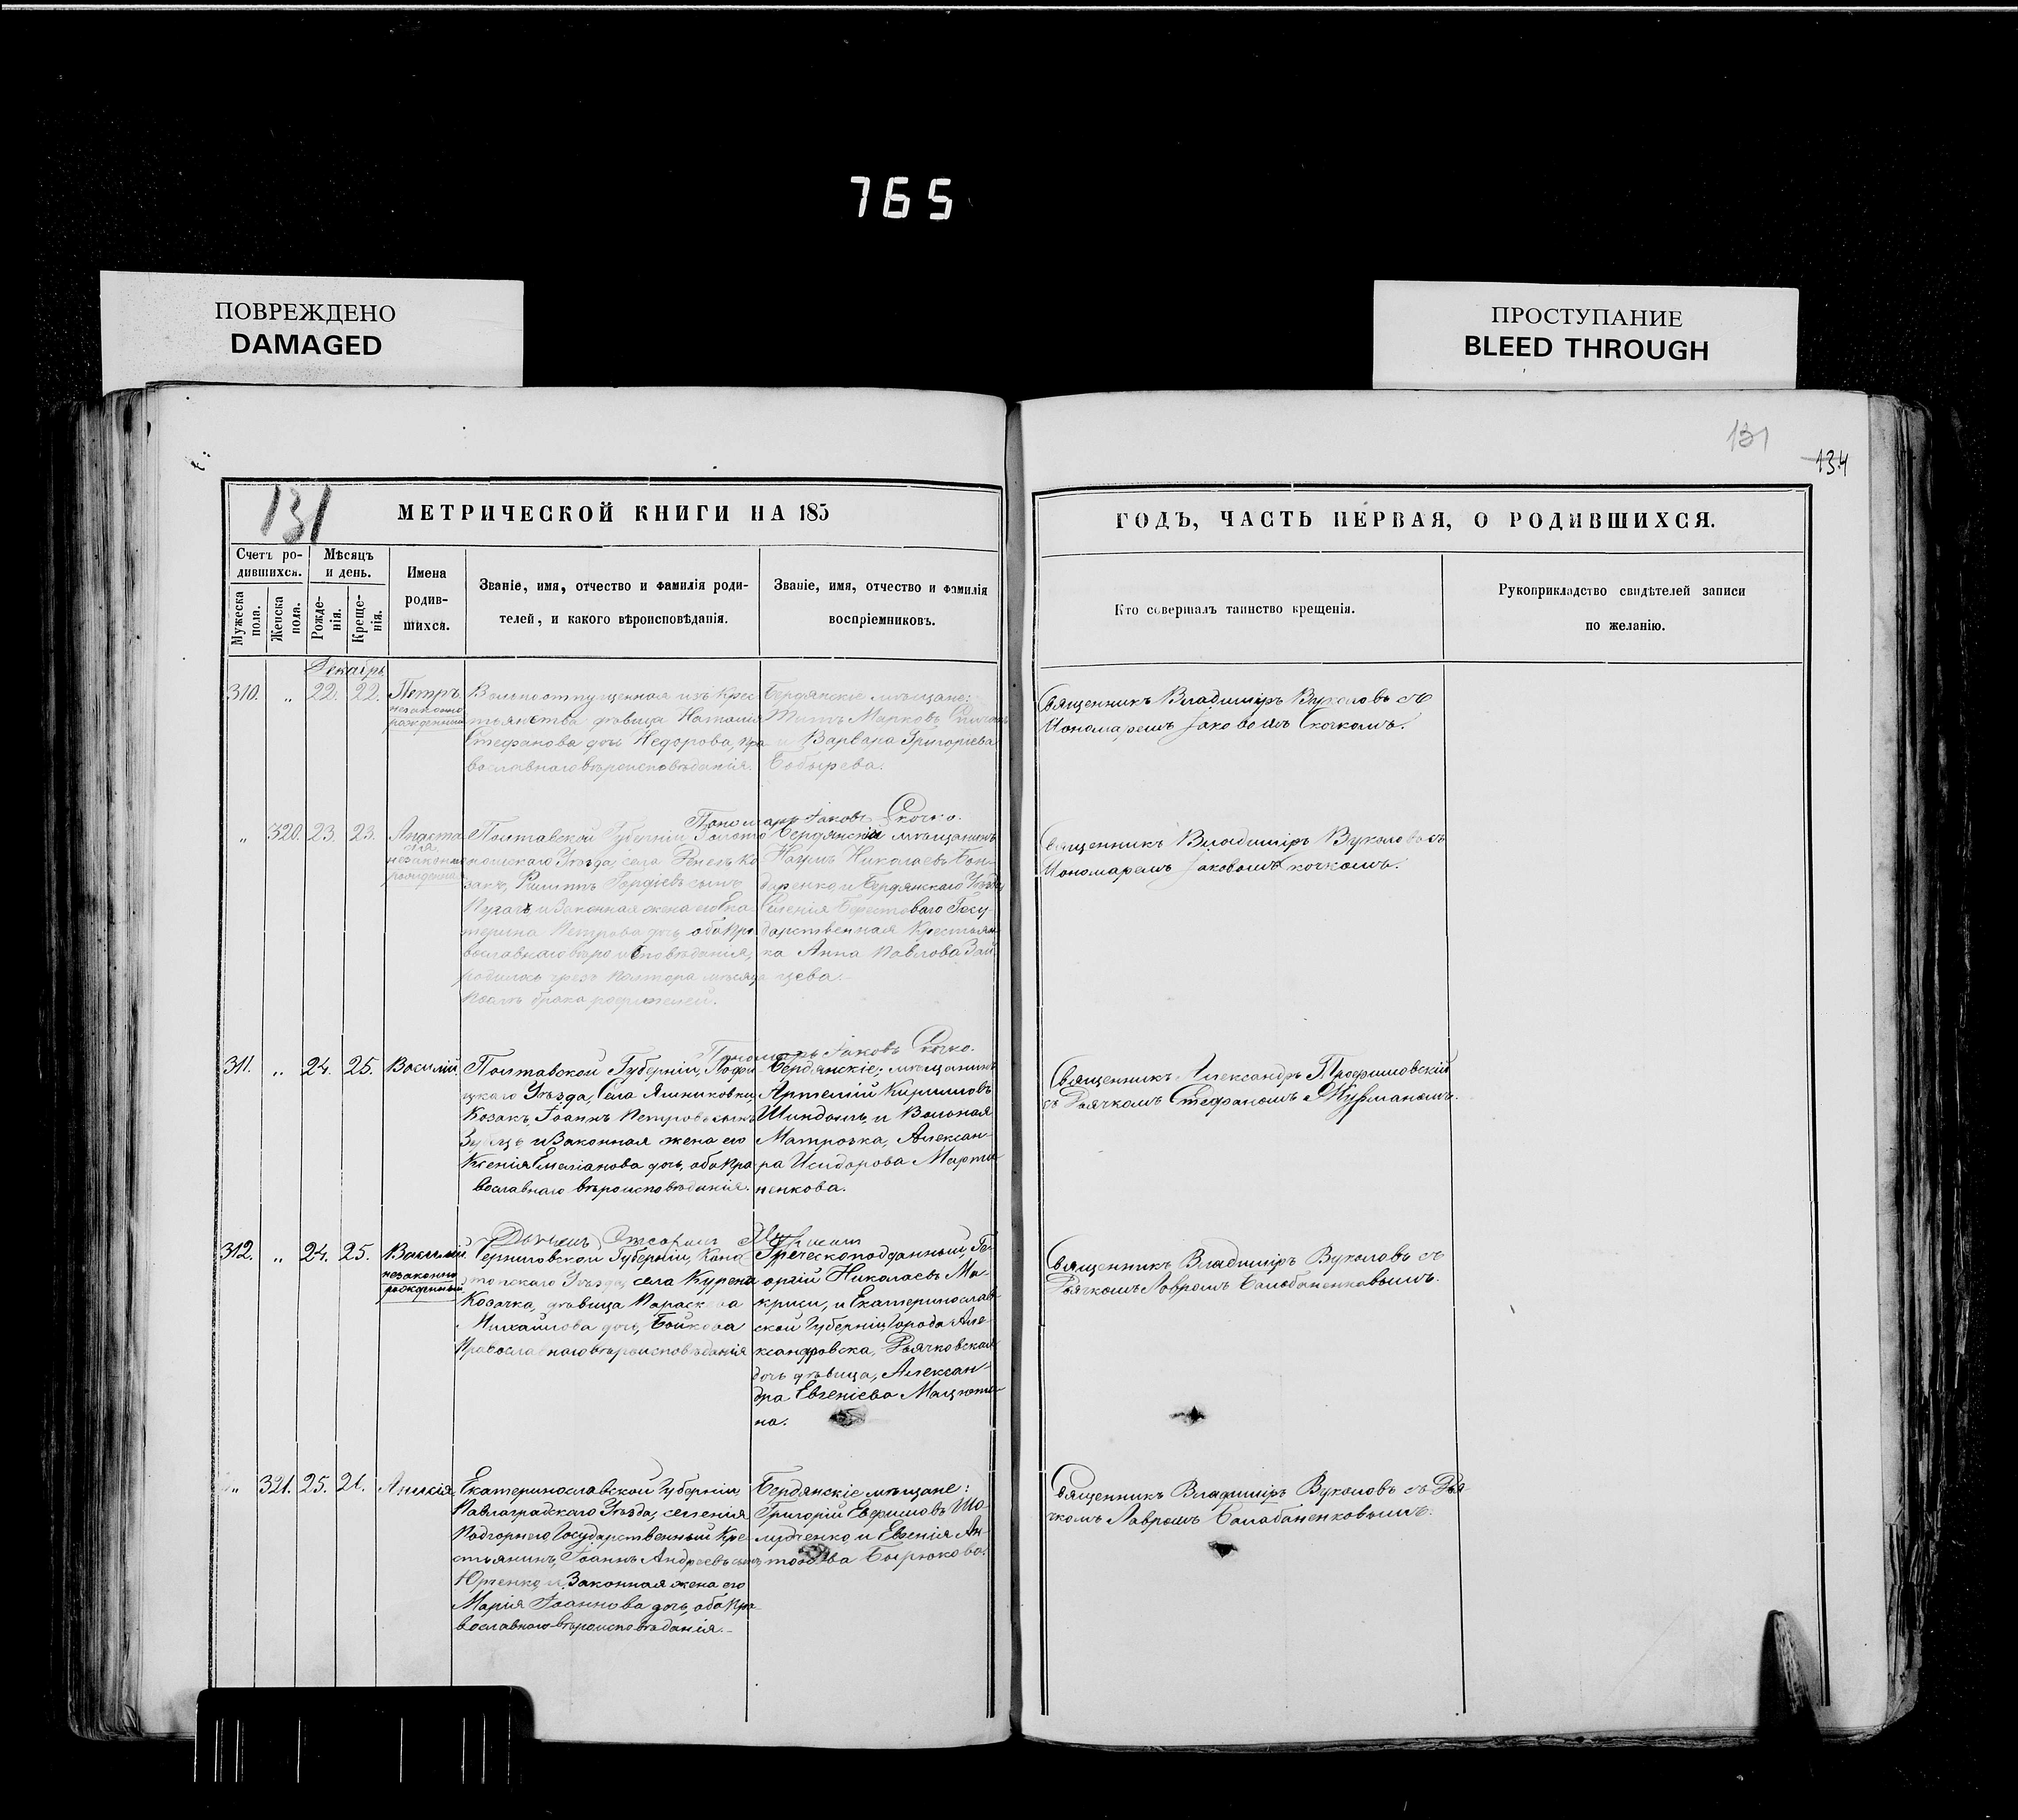 765
ПОВРЕЖДЕНО
DAMAGED
ПРОСТУПАНИЕ
BLEED THROUGH
131
134
131
МЕТРИЧЕСКОЙ КНИГИ НА 185
ГОДЪ, ЧАСТЬ ПЕРВАЯ, О РОДИВШИХСЯ.
Счетъ ро-
дившихся.
Мѣсяцъ
и день.
Мужеска
пола.
Женска
пола.
Рожде-
нія.
Креще-
нія.
Имена
родив-
шихся.
Званіе, имя, отчество и фамилія роди-
телей, и какого вѣроисповѣданія.
Званіе, имя, отчество и фамилія
воспріемниковъ.
Кто совершалъ таинство крещенія.
Рукоприкладство свидѣтелей записи
по желанію.
Декабрь
310. „ 22. 22. Петръ
незаконно
рожденный
Вольноотпущенная изъ Крес
тьянства дѣвица Наталія
Стефанова дочь Недорова, пра
вославнаго вѣроисповѣданія.
Бердянскіе мѣщане:
Титъ Марковъ
и Варвара Григоріева
Бобырева.
Священникъ Владиміръ Вуколовъ съ
Пономаремъ Іаковомъ Скочкомъ.
Пономарь Іаковъ Скочко.
„ 320. 23. 23.
незаконно
рожденная
Полтавской Губерніи Золото
ношскаго Уѣзда, села Ко
закъ, Гордіевъ сынъ
Пугачъ и Законная жена его Ека
терина Петрова дочь, оба Пра
вославнаго вѣроисповѣданія,
родилась чрезъ полтора мѣсяца
послѣ брака родителей.
Бердянскій мѣщанинъ
Наумъ Николаевъ Бон-
даренко и Бердянскаго Уѣзда
Селенія Берестоваго Госу-
дарственная Крестьян
ка Анна Павлова Зай
цева.
Священникъ Владиміръ Вуколовъ съ
Пономаремъ Іаковомъ Скочкомъ.
Пономарь Іаковъ Скочко.
311. „ 24. 25. Василій
Полтавской Губерніи,
цкаго Уѣзда, Села Яшниковки
Козакъ, Іоаннъ Петровъ сынъ
и Законная жена его
Ксенія Емеліанова дочь, оба Пра
вославнаго вѣроисповѣданія.
Бердянскіе; мѣщанинъ
Артемій Кирилловъ
Шиндомъ, и Вольная
Матроска, Алексан-
ра Исидорова Марты
ненкова.
Священникъ Александръ Трофимовскій
съ Дьячкомъ Стефаномъ Журманомъ.
312. „ 24. 25. Василій
незаконно
рожденный
Черниговской Губерніи, Коно
топскаго Уѣзда, села Куреня
Козачка, дѣвица Параскева
Михайлова дочь, Бойкова
Православнаго вѣроисповѣданія
Греческоподданный, Ге-
оргій Николаевъ Ма-
криси, и Екатеринослав
ской Губерніи Города Але-
ксандровска, Дьячковская
дочь дѣвица, Алексан-
дра Евгеніева Мацюти
на.
Священникъ Владиміръ Вуколовъ съ
Дьячкомъ Лавромъ Балабаненковымъ.
„ 321. 25. 26. Анисія
Екатеринославской Губерніи
Павлоградскаго Уѣзда, селенія
Подгорнаго Государственный Кре
стьянинъ, Іоаннъ Андреевъ сынъ
Юрченко и Законная жена его
Марія Іоаннова дочь, оба Пра
вославнаго вѣроисповѣданія.
Бердянскіе мѣщане:
Григорій Евфимовъ Шо-
лудченко, и Евгенія Ан-
тонова Бырюкова.
Священникъ Владиміръ Вуколовъ съ Дья
чкомъ Лавромъ Балабаненковымъ.